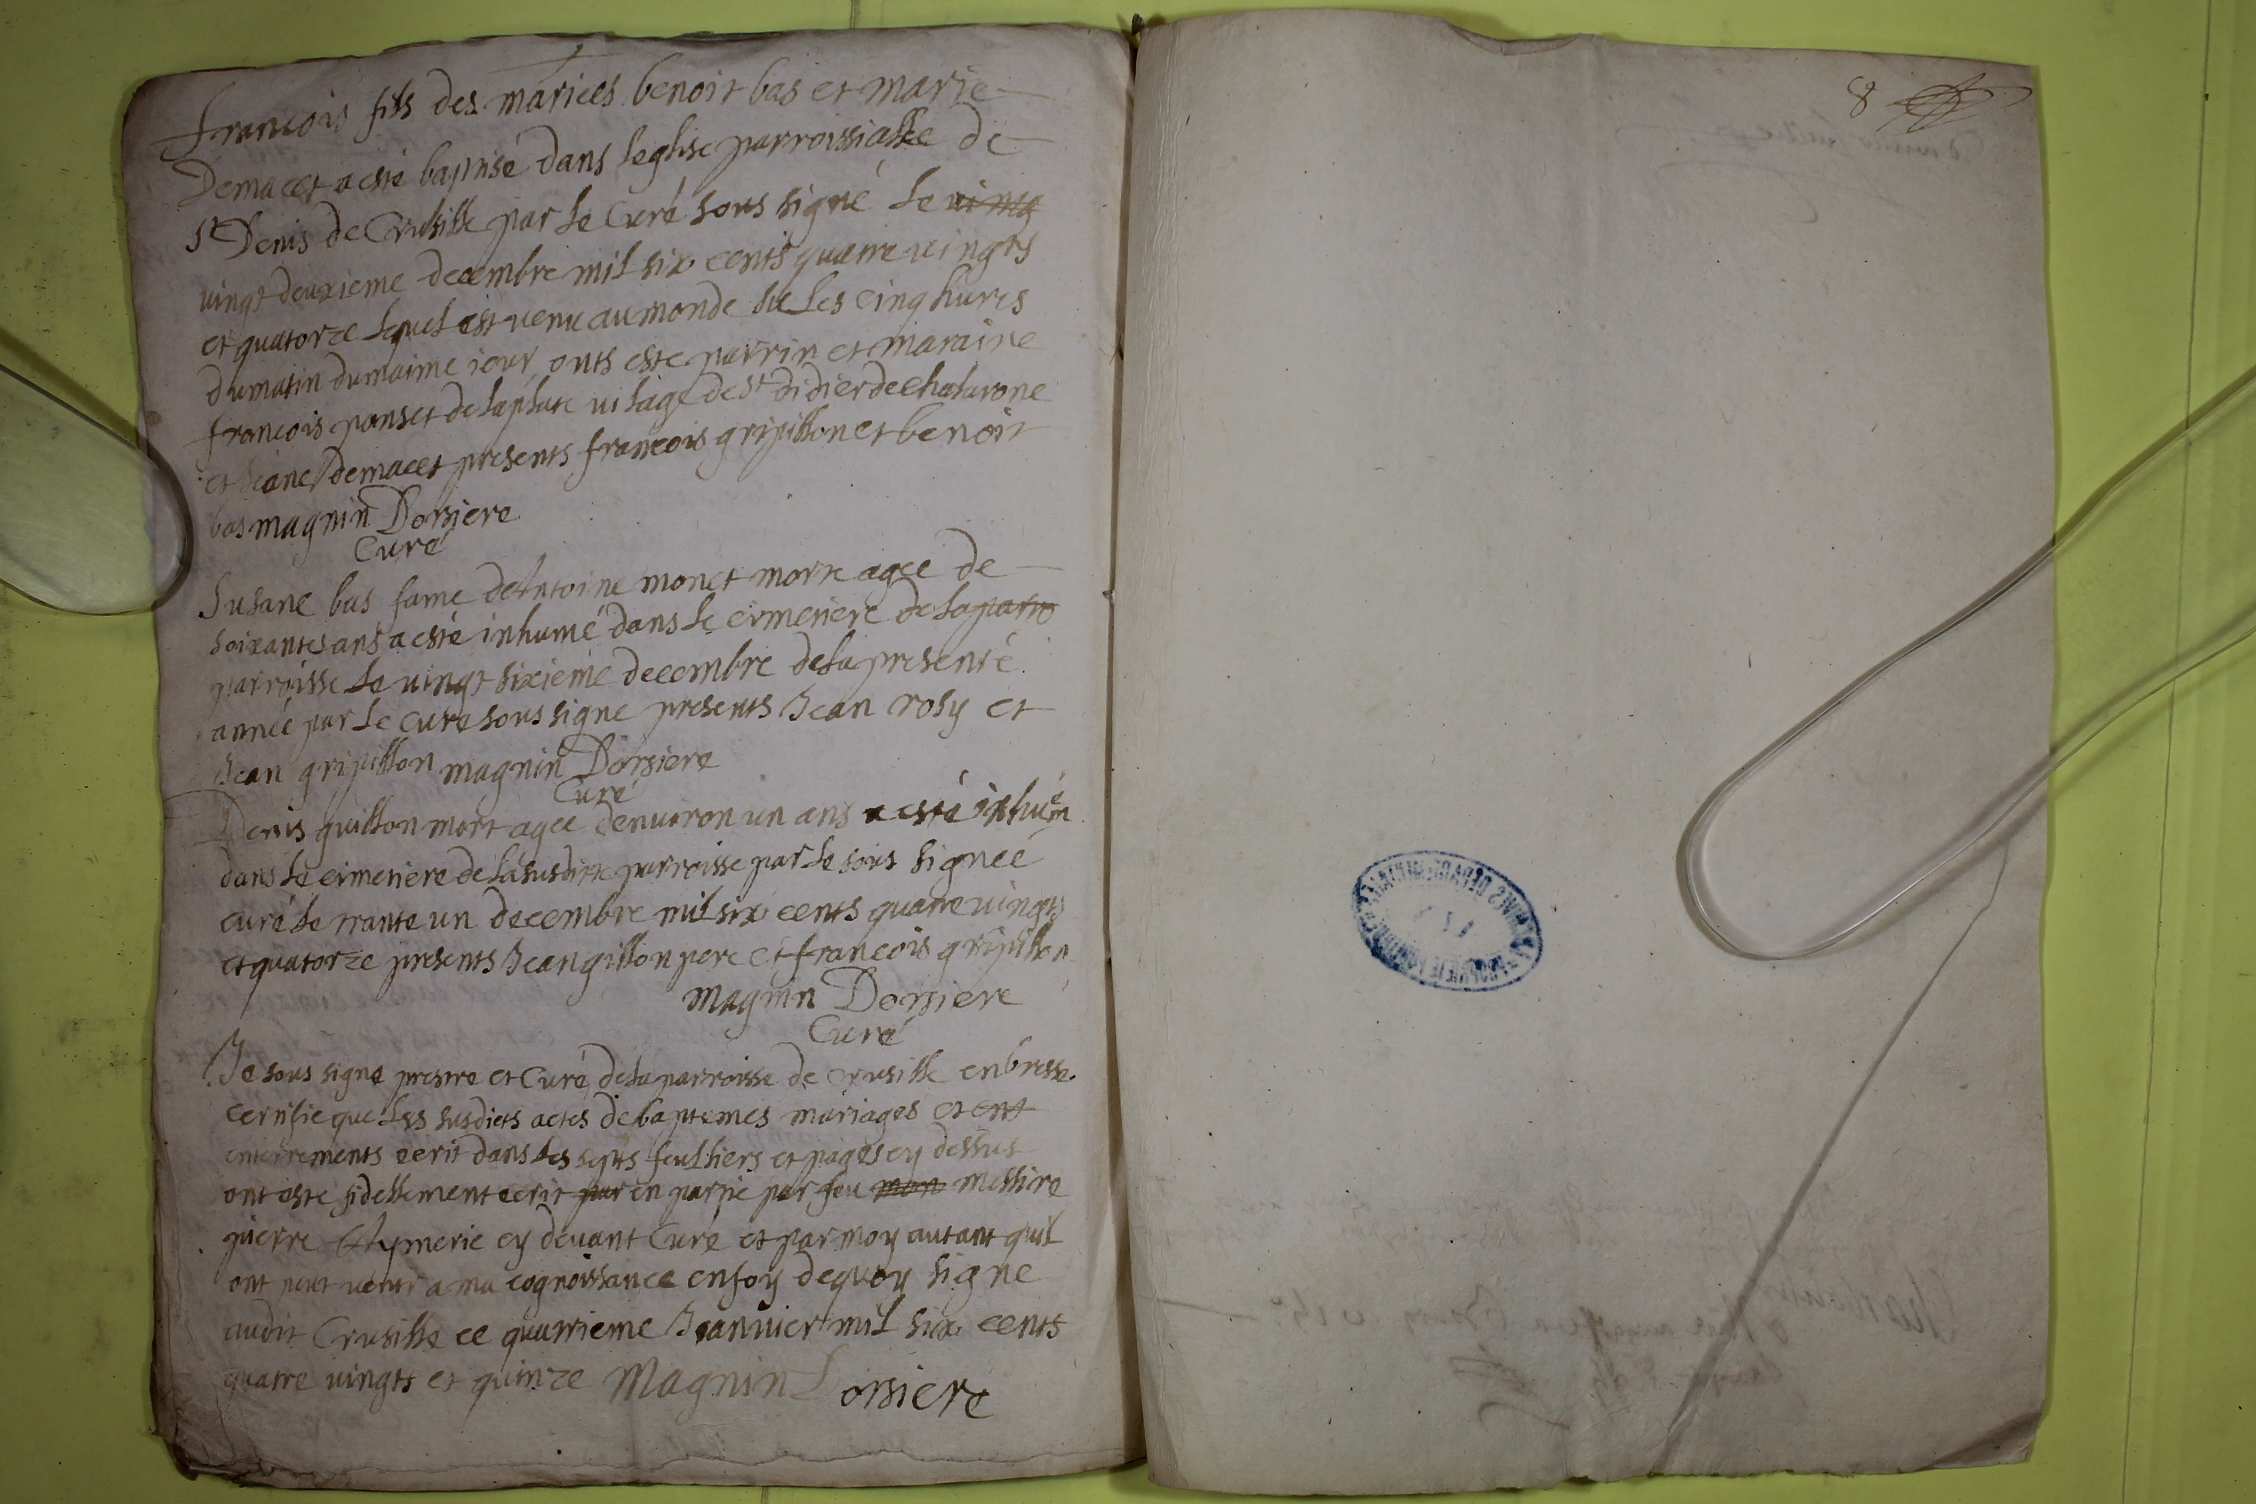 francois fils des mariees benoit bas et marie
Demacet a esté baptisé dans leglise parroissialle de
St Denis de Crusille par le Curé sous signé le ving
vingt deuxieme decembre mil six cents quatre vingts
et quatorze lequel est venu au monde sue les cinq hures
du matin du maime iour, onts este parrin et maraine
francois ponset de laplate vilage de St didier de chalarone
et Jeane demacet presents francois gripillon et benoit
bas magnin Dorsiere
Curé
Susane bas fame de Antoine monet morte agee de
soixantes ans a esté inhumé dans le cimetiere de la parro
parroisse le vingt sixieme decembre de la presenté
année par le curé sous signe presents Jean rosy et
Jean gripillon magnin Dorsiere
Curé
Denis guillon mort agee denviron un ans a esté
dans le cimetiere de la susditte parroisse par le sous signee
curé le trante un decembre mil six cents quatre vingts
et quatorze presents Jean gillon pere et francois gripillon
magnin Dorsiere
Curé
Je sous signe prestre et Curé de la parroisse de Crusille en bresse
certifie que les susdicts actes de baptemes mariages et ent
enterrements ecrit dans les septs feulliers et pages cy dessus
ont este fidellement ecrit par en partie par feu mon messire
pierre Aymerie cy devant Curé et par moy autant quil
ont peut venir a ma cognoissance en foy dequoy signe
audit Crusille ce quatrieme Jeannier mil six cents
quatre vingts et quinze Magnin Dorsiere
8